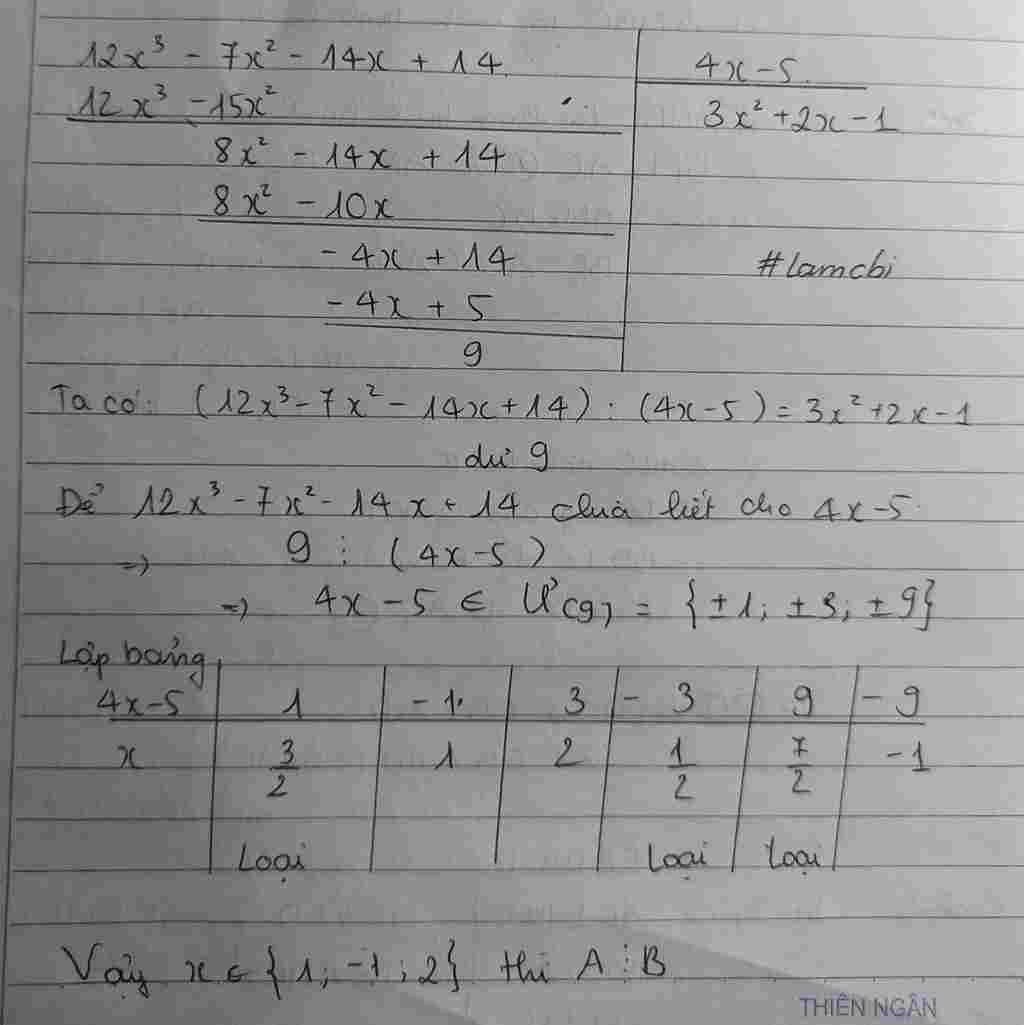 12x³ - 7x² - 14x + 14 | 4x - 5
12x³ - 15x² | 3x² + 2x - 1
8x² - 14x + 14
8x² - 10x
- 4x + 14 #lamcbi
- 4x + 5
9
Ta có: (12x³ - 7x² - 14x + 14) : (4x - 5) = 3x² + 2x - 1
dư 9
Để 12x³ - 7x² - 14x + 14 chia hết cho 4x - 5
=> 9 ⋮ (4x - 5)
=> 4x - 5 ∈ Ư(9) = {±1; ±3; ±9}
Lập bảng
4x-5 | 1 | -1 | 3 | -3 | 9 | -9
x | 3/2 | 1 | 2 | 1/2 | 7/2 | -1
Loại Loại Loại
Vậy x ∈ {1; -1; 2} thì A ⋮ B
THIÊN NGÂN